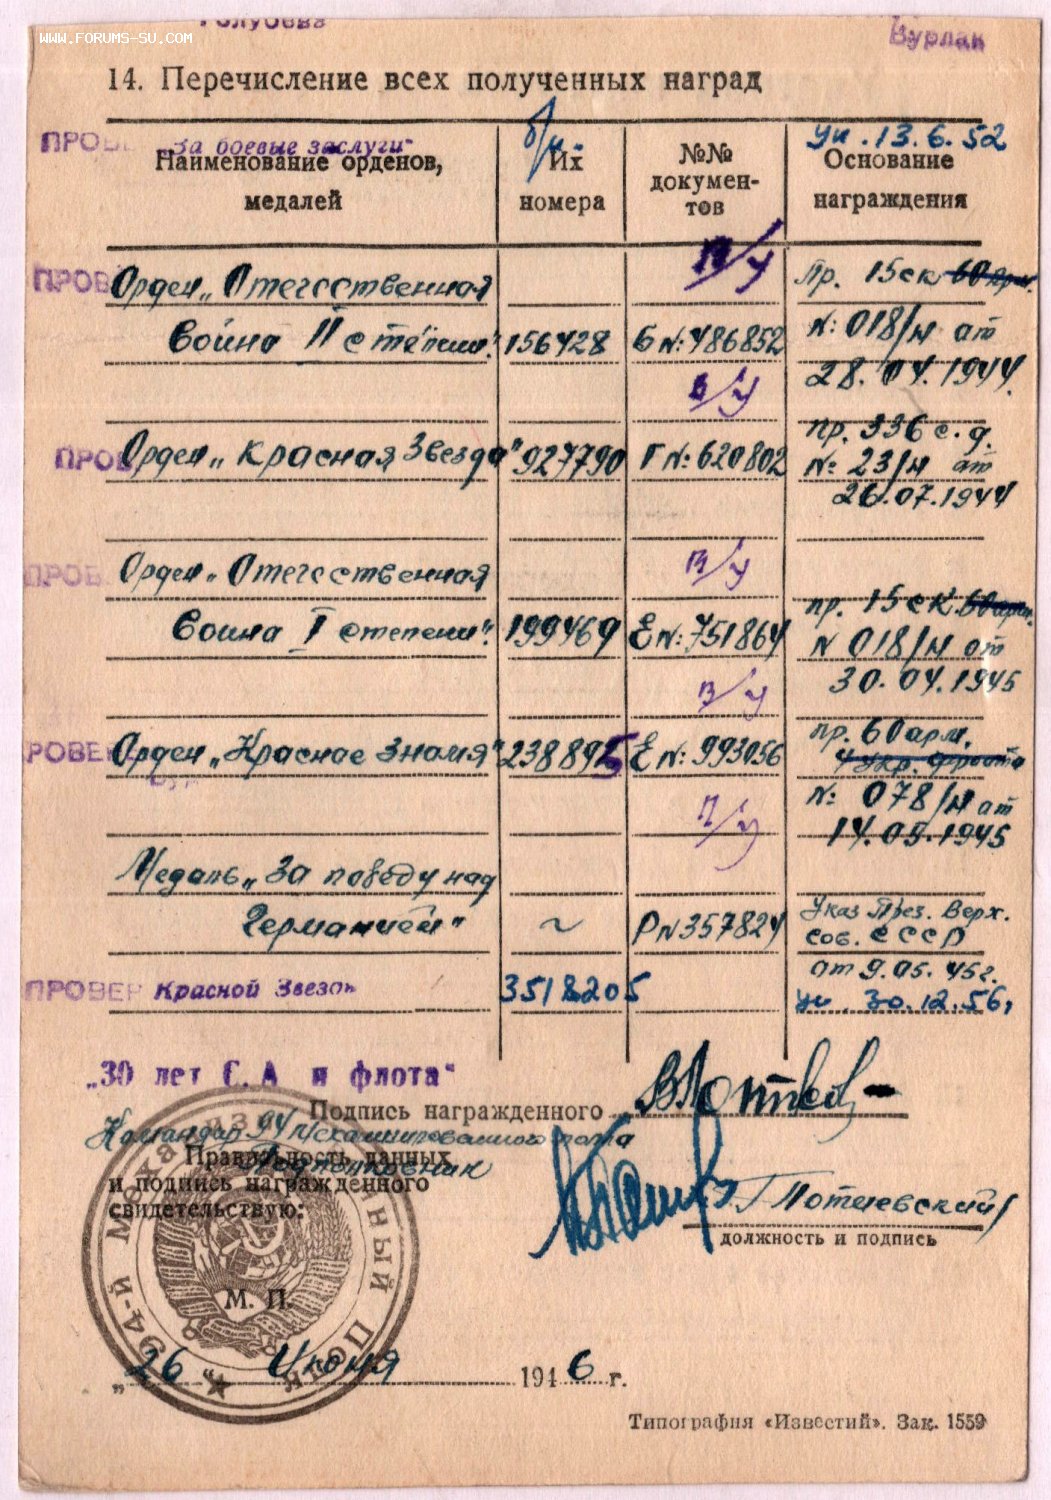 WWW.FORUMS-SU.COM
Голубева
Бурлак
14. Перечисление всех полученных наград
ПРОВ "За боевые заслуги" б/н Ук. 13.6.52
Наименование орденов, медалей
Их номера
№№ документов
Основание награждения
ПРОВ Орден „Отечественная в/у Пр. 15 ск 60 арм.
война II степени". 156428 Б №: 486852 №: 018/н от
в/у 28.04.1944.
ПРОВ Орден „Красная Звезда" 927790 Г №: 620802 пр. 336 с.д.
№: 23/н от
26.07.1944
ПРОВ Орден „Отечественная в/у
война I степени". 199469 Е №: 751864 пр. 15 ск. 60 арм.
N 018/н от
в/у 30.04.1945
РОВЕРЕ Орден „Красное Знамя" 238895 Е №: 993056 пр. 60 арм.
4 Укр. фронта
№: 078/н от
П/у 14.05.1945
Медаль „За победу над
Германией" ~ Р № 357824 Указ През. Верх.
Сов. СССР
от 9.05.45г.
ПРОВЕР Красной Звезды 3518205 Ук. 30.12.56,
„30 лет С.А и флота"
Подпись награжденного
Командир 94 механизированного полка
Подполковник
Правильность данных
и подпись награжденного
свидетельствую:
Потиевский
должность и подпись
94-Й МЕХАНИЗИРОВАННЫЙ ПОЛК
М. П.
„26" Июня 1946 г.
Типография «Известий». Зак. 1559